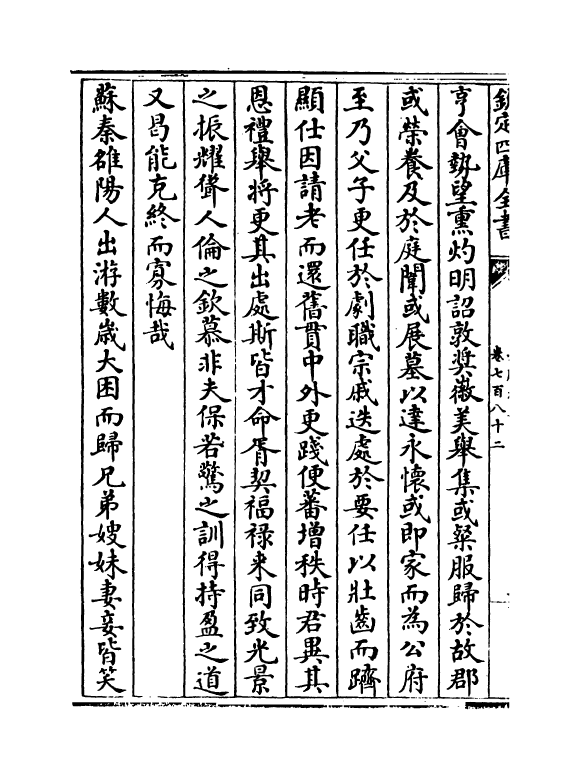 欽定四庫全書
卷七百八十二
亨會勢望熏灼明詔敦奨徽美舉集或粲服歸於故郡
或榮養及於庭闈或展墓以達永懷或即家而為公府
至乃父子更任於劇職宗戚迭處於要任以壯齒而躋
顯仕因請老而還舊貫中外更踐便蕃増秩時君異其
恩禮舉將更其出處斯皆才命胥契福禄来同致光景
之振耀聳人倫之欽慕非夫保若驚之訓得持盈之道
又曷能克終而寡悔哉
蘇秦雒陽人出游數歳大困而歸兄弟嫂妹妻妾皆笑